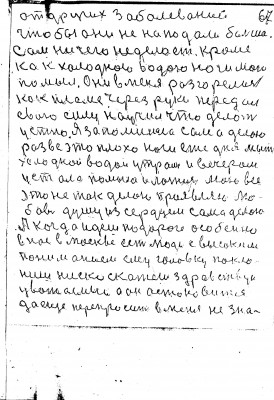 от других заболеваний 67
чтобы они не нападали больше.
Сам ничего неделает. Кроме
как холодною водою ноги мои
помыл. Они в меня разгорелись
как пламе через руки передал
свою силу научил что делать
устно. Я запомнил сам а делаю
разве это плохо ноги еже дня мыть
холодной водой утром и вечером
это не так делаю проявляю лю-
бовь душу из сердцем сам а делаю
Я когда идем по дороге особенно
в нас в Москве есть люди с высоким
пониманием ему головку покло-
ним низко скажем здравствуй
уважаемый а он остановится
да еще переспросить в меня не зна-